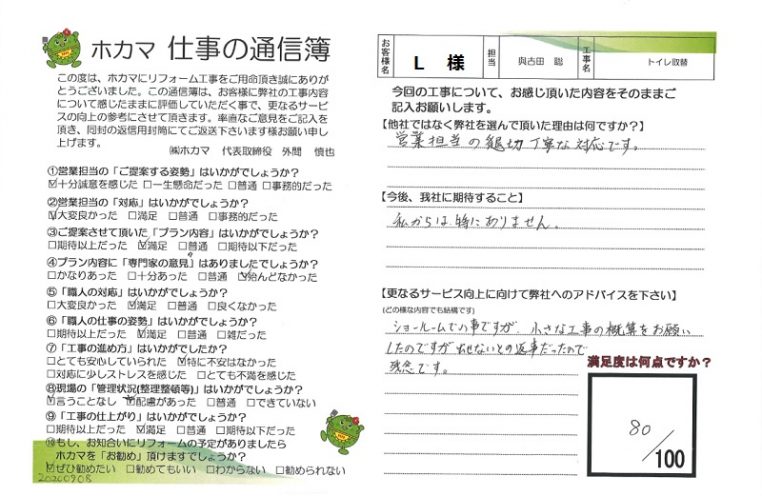 ホカマ 仕事の通信簿
この度は、ホカマにリフォーム工事をご用命頂き誠にありが
とうございました。この通信簿は、お客様に弊社の工事内容
について感じたままに評価していただく事で、更なるサービ
スの向上の参考にさせて頂きます。率直なご意見をご記入を
頂き、同封の返信用封筒にてご返送下さいます様お願い申し
上げます。
㈱ホカマ 代表取締役 外間 慎也
①営業担当の「ご提案する姿勢」はいかがでしょうか?
☑十分誠意を感じた □一生懸命だった □普通 □事務的だった
②営業担当の「対応」はいかがでしょうか?
☑大変良かった □満足 □普通 □事務的だった
③ご提案させて頂いた「プラン内容」はいかがでしょうか?
□期待以上だった ☑満足 □普通 □期待以下だった
④プラン内容に「専門家の意見」はありましたでしょうか?
□かなりあった □十分あった □普通 ☑殆んどなかった
⑤「職人の対応」はいかがでしょうか?
□大変良かった ☑満足 □普通 □良くなかった
⑥「職人の仕事の姿勢」はいかがでしょうか?
□期待以上だった ☑満足 □普通 □雑だった
⑦「工事の進め方」はいかがでしたか?
□とても安心していられた ☑特に不安はなかった
□対応に少しストレスを感じた □とても不満を感じた
⑧現場の「管理状況(整理整頓等)」はいかがでしょうか?
☑言うことなし ☑配慮があった □普通 □できていない
⑨「工事の仕上がり」はいかがでしょうか?
□期待以上だった ☑満足 □普通 □期待以下だった
⑩もし、お知合いにリフォームの予定がありましたら
ホカマを「お勧め」頂けますでしょうか?
☑ぜひ勧めたい □勧めてもいい □わからない □勧められない
20200908
お客様名 L 様 担当 與古田 聡 工事名 トイレ取替
今回の工事について、お感じ頂いた内容をそのままご
記入お願いします。
【他社ではなく弊社を選んで頂いた理由は何ですか?】
営業担当の親切丁寧な対応です。
【今後、我社に期待すること】
私からは特にありません。
【更なるサービス向上に向けて弊社へのアドバイスを下さい】
(どの様な内容でも結構です)
ショールームでの事ですが、小さな工事の概算をお願い
したのですが出せないとの返事だったので
残念です。
満足度は何点ですか?
80/100